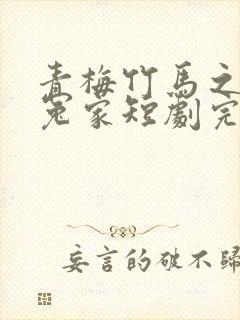 青梅竹馬之
冤家短劇完
妄言的破不歸